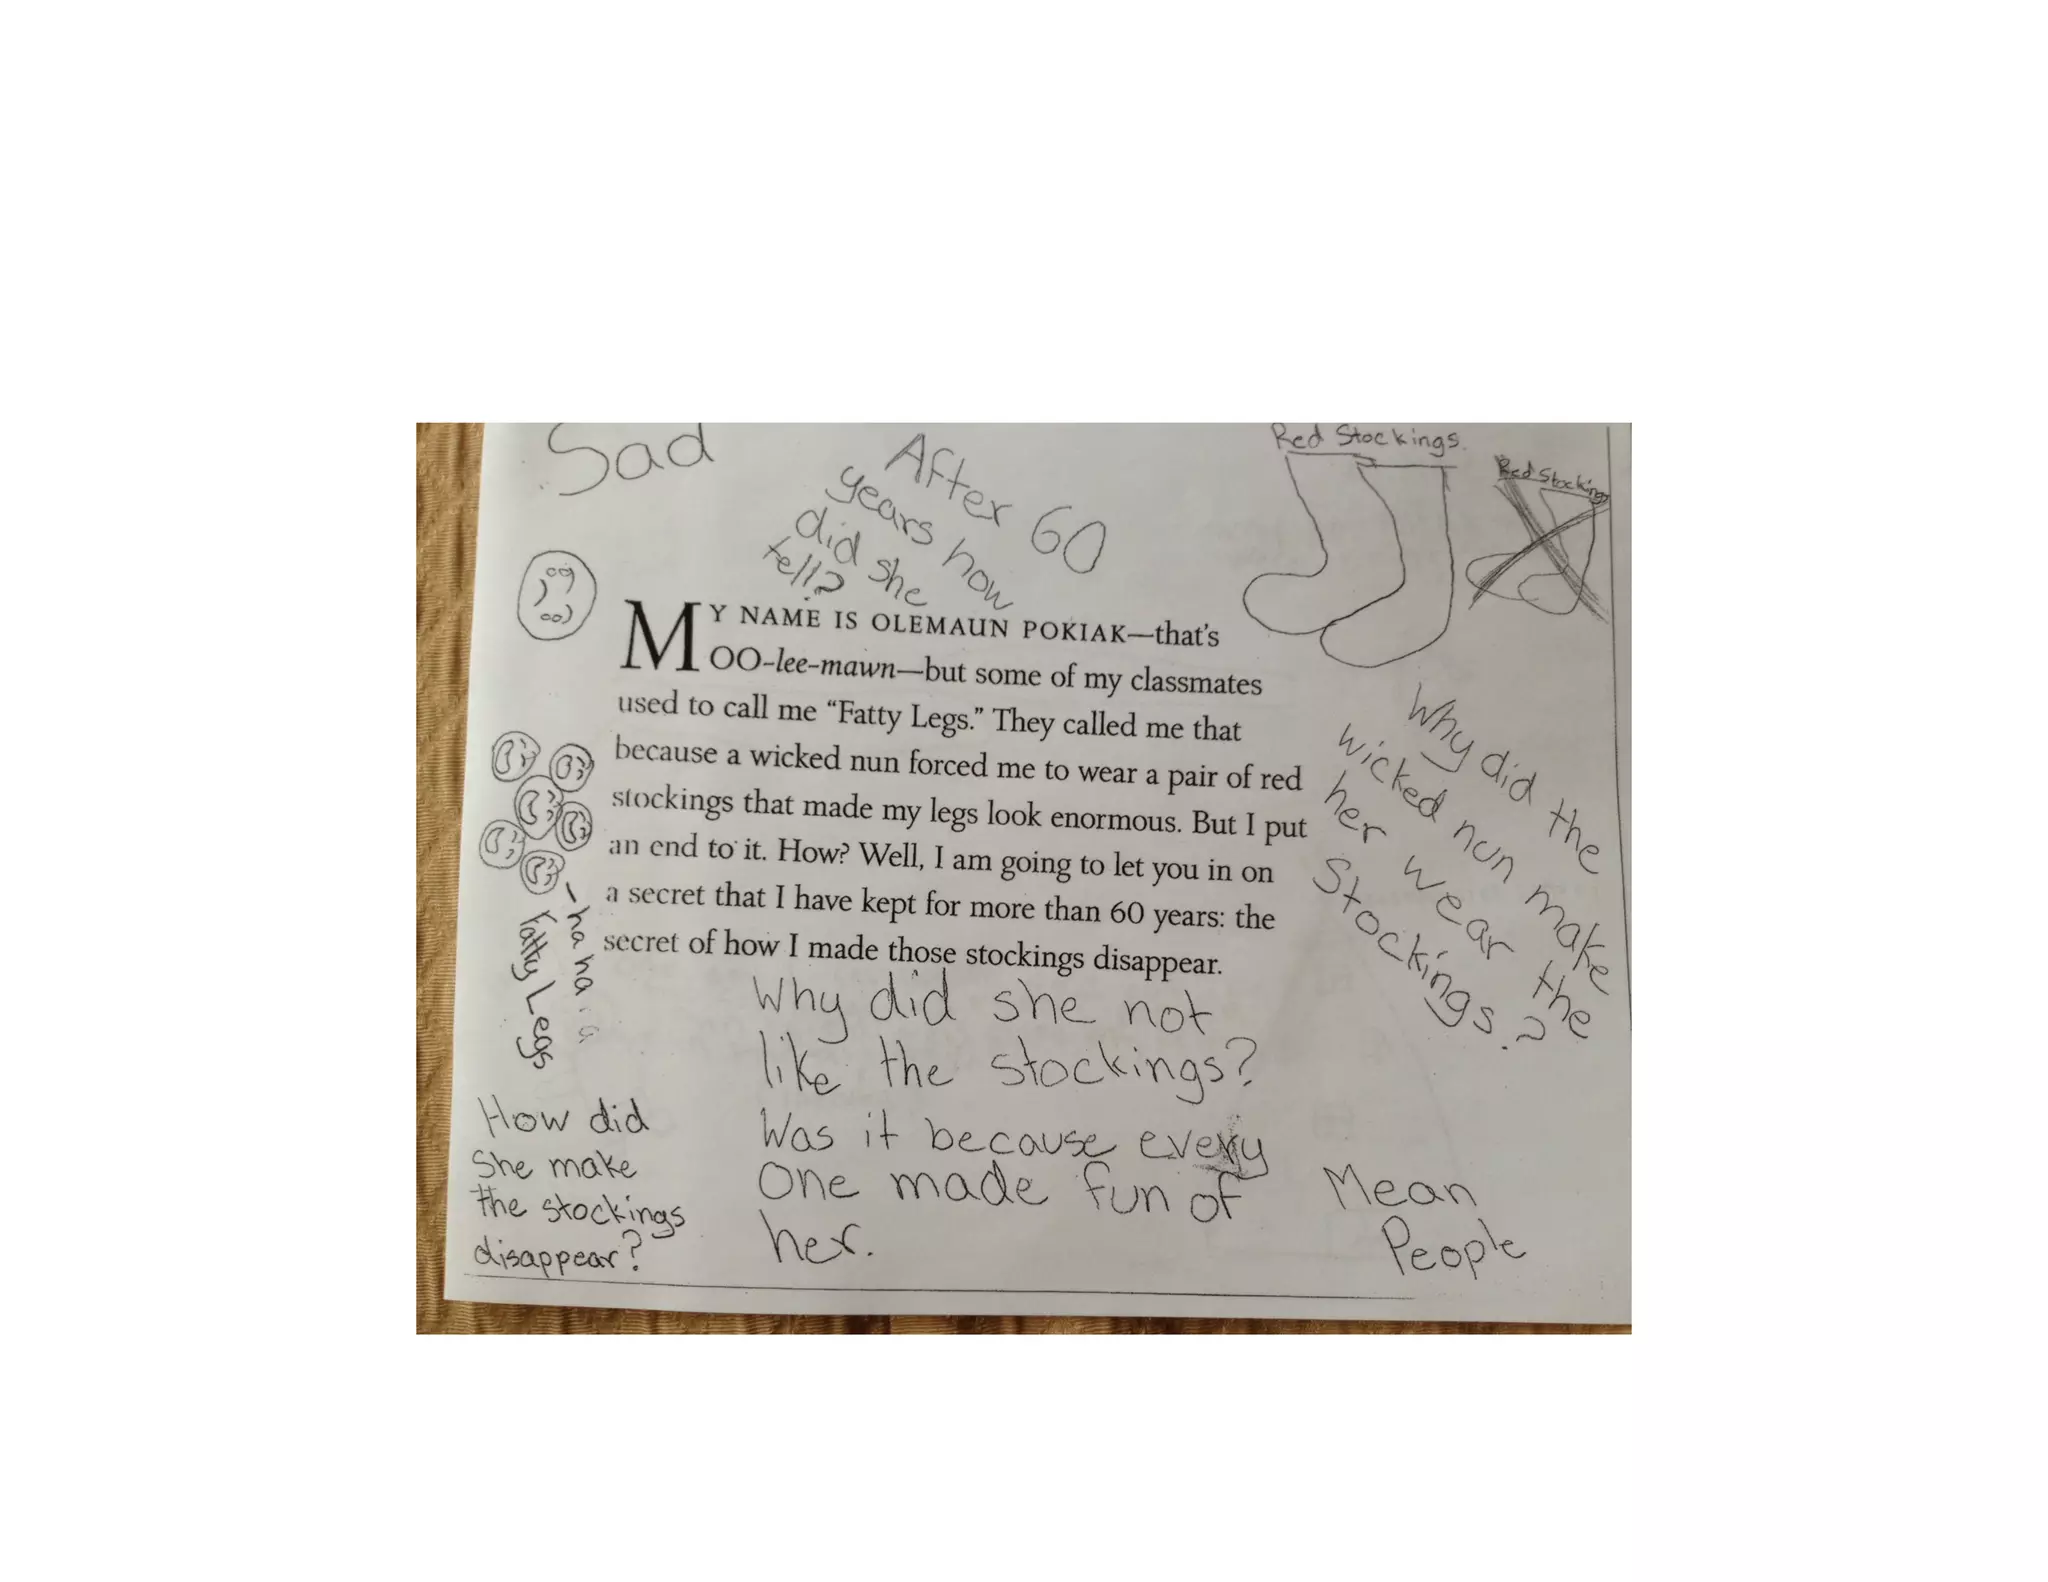 Sad
After 60
years how
did she
tell?
Red Stockings.
Red Stockings
MY NAME IS OLEMAUN POKIAK—that's
OO-lee-mawn—but some of my classmates
used to call me “Fatty Legs.” They called me that
because a wicked nun forced me to wear a pair of red
stockings that made my legs look enormous. But I put
an end to it. How? Well, I am going to let you in on
a secret that I have kept for more than 60 years: the
secret of how I made those stockings disappear.
Why did the
wicked nun make
her wear the
Stockings.?
-ha ha
Fatty Legs
Why did she not
like the stockings?
Was it because every
one made fun of
her.
How did
She make
the stockings
disappear?
Mean
People